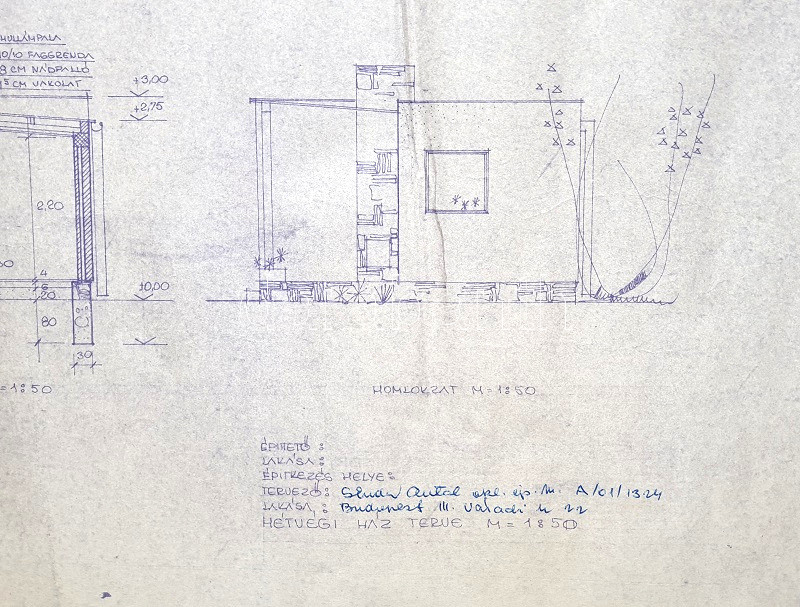 HULLÁMPALA
10/10 FAGERENDA
8 CM NÁDPALLÓ
1⁵ CM VAKOLAT
+3,00
+2,75
2,20
4
6
20
±0,00
80
C10
30
=1:50
HOMLOKZAT M=1:50
ÉPITTETŐ :
LAKÁSA :
ÉPITKEZÉS HELYE:
TERVEZŐ: Antal okl. ép. m. A/01/1324
LAKÁSA : Budapest III. Váradi u 22
HÉTVÉGI HÁZ TERVE M=1:50